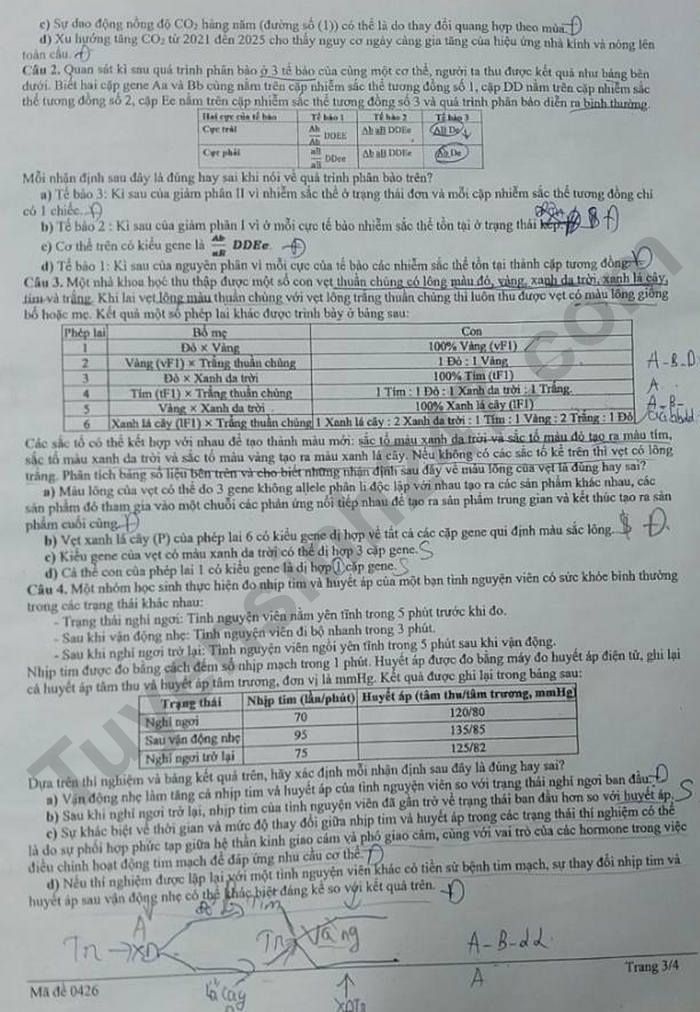 c) Sự dao động nồng độ CO₂ hàng năm (đường số (1)) có thể là do thay đổi quang hợp theo mùa. Đ
d) Xu hướng tăng CO₂ từ 2021 đến 2025 cho thấy nguy cơ ngày càng gia tăng của hiệu ứng nhà kính và nóng lên
toàn cầu. Đ
Câu 2. Quan sát kì sau quá trình phân bào ở 3 tế bào của cùng một cơ thể, người ta thu được kết quả như bảng bên
dưới. Biết hai cặp gene Aa và Bb cùng nằm trên cặp nhiễm sắc thể tương đồng số 1, cặp DD nằm trên cặp nhiễm sắc
thể tương đồng số 2, cặp Ee nằm trên cặp nhiễm sắc thể tương đồng số 3 và quá trình phân bào diễn ra bình thường.
Hai cực của tế bào Tế bào 1 Tế bào 2 Tế bào 3
Cực trái Ab/Ab DDEE Ab aB DDEe Ab De
Cực phải aB/aB DDee Ab aB DDEe Ab De
Mỗi nhận định sau đây là đúng hay sai khi nói về quá trình phân bào trên?
a) Tế bào 3: Kì sau của giảm phân II vì nhiễm sắc thể ở trạng thái đơn và mỗi cặp nhiễm sắc thể tương đồng chỉ
có 1 chiếc. Đ
b) Tế bào 2 : Kì sau của giảm phân I vì ở mỗi cực tế bào nhiễm sắc thể tồn tại ở trạng thái kép.
c) Cơ thể trên có kiểu gene là Ab/aB DDEe. Đ
d) Tế bào 1: Kì sau của nguyên phân vì mỗi cực của tế bào các nhiễm sắc thể tồn tại thành cặp tương đồng. Đ
Câu 3. Một nhà khoa học thu thập được một số con vẹt thuần chủng có lông màu đỏ, vàng, xanh da trời, xanh lá cây,
tím và trắng. Khi lai vẹt lông màu thuần chủng với vẹt lông trắng thuần chủng thì luôn thu được vẹt có màu lông giống
bố hoặc mẹ. Kết quả một số phép lai khác được trình bày ở bảng sau:
Phép lai Bố mẹ Con
1 Đỏ × Vàng 100% Vàng (vF1)
2 Vàng (vF1) × Trắng thuần chủng 1 Đỏ : 1 Vàng
3 Đỏ × Xanh da trời 100% Tím (tF1)
4 Tím (tF1) × Trắng thuần chủng 1 Tím : 1 Đỏ : 1 Xanh da trời : 1 Trắng.
5 Vàng × Xanh da trời 100% Xanh lá cây (lF1)
6 Xanh lá cây (lF1) × Trắng thuần chủng 1 Xanh lá cây : 2 Xanh da trời : 1 Tím : 1 Vàng : 2 Trắng : 1 Đỏ
A-B-D
A
A-B-
Các sắc tố có thể kết hợp với nhau để tạo thành màu mới: sắc tố màu xanh da trời và sắc tố màu đỏ tạo ra màu tím,
sắc tố màu xanh da trời và sắc tố màu vàng tạo ra màu xanh lá cây. Nếu không có các sắc tố kể trên thì vẹt có lông
trắng. Phân tích bảng số liệu bên trên và cho biết những nhận định sau đây về màu lông của vẹt là đúng hay sai?
a) Màu lông của vẹt có thể do 3 gene không allele phân li độc lập với nhau tạo ra các sản phẩm khác nhau, các
sản phẩm đó tham gia vào một chuỗi các phản ứng nối tiếp nhau để tạo ra sản phẩm trung gian và kết thúc tạo ra sản
phẩm cuối cùng. Đ
b) Vẹt xanh lá cây (P) của phép lai 6 có kiểu gene dị hợp về tất cả các cặp gene qui định màu sắc lông. Đ
c) Kiểu gene của vẹt có màu xanh da trời có thể dị hợp 3 cặp gene. S
d) Cá thể con của phép lai 1 có kiểu gene là dị hợp 1 cặp gene. S
Câu 4. Một nhóm học sinh thực hiện đo nhịp tim và huyết áp của một bạn tình nguyện viên có sức khỏe bình thường
trong các trạng thái khác nhau:
- Trạng thái nghỉ ngơi: Tình nguyện viên nằm yên tĩnh trong 5 phút trước khi đo.
- Sau khi vận động nhẹ: Tình nguyện viên đi bộ nhanh trong 3 phút.
- Sau khi nghỉ ngơi trở lại: Tình nguyện viên ngồi yên tĩnh trong 5 phút sau khi vận động.
Nhịp tim được đo bằng cách đếm số nhịp mạch trong 1 phút. Huyết áp được đo bằng máy đo huyết áp điện tử, ghi lại
cả huyết áp tâm thu và huyết áp tâm trương, đơn vị là mmHg. Kết quả được ghi lại trong bảng sau:
Trạng thái Nhịp tim (lần/phút) Huyết áp (tâm thu/tâm trương, mmHg)
Nghỉ ngơi 70 120/80
Sau vận động nhẹ 95 135/85
Nghỉ ngơi trở lại 75 125/82
Dựa trên thí nghiệm và bảng kết quả trên, hãy xác định mỗi nhận định sau đây là đúng hay sai?
a) Vận động nhẹ làm tăng cả nhịp tim và huyết áp của tình nguyện viên so với trạng thái nghỉ ngơi ban đầu. Đ
b) Sau khi nghỉ ngơi trở lại, nhịp tim của tình nguyện viên đã gần trở về trạng thái ban đầu hơn so với huyết áp. S
c) Sự khác biệt về thời gian và mức độ thay đổi giữa nhịp tim và huyết áp trong các trạng thái thí nghiệm có thể
là do sự phối hợp phức tạp giữa hệ thần kinh giao cảm và phó giao cảm, cùng với vai trò của các hormone trong việc
điều chỉnh hoạt động tim mạch để đáp ứng nhu cầu cơ thể. Đ
d) Nếu thí nghiệm được lặp lại với một tình nguyện viên khác có tiền sử bệnh tim mạch, sự thay đổi nhịp tim và
huyết áp sau vận động nhẹ có thể khác biệt đáng kể so với kết quả trên. Đ
A Tím
Tr → XD Tr Vàng A-B-dd
lá cây A
Mã đề 0426 Trang 3/4
Tuyensinh247.com